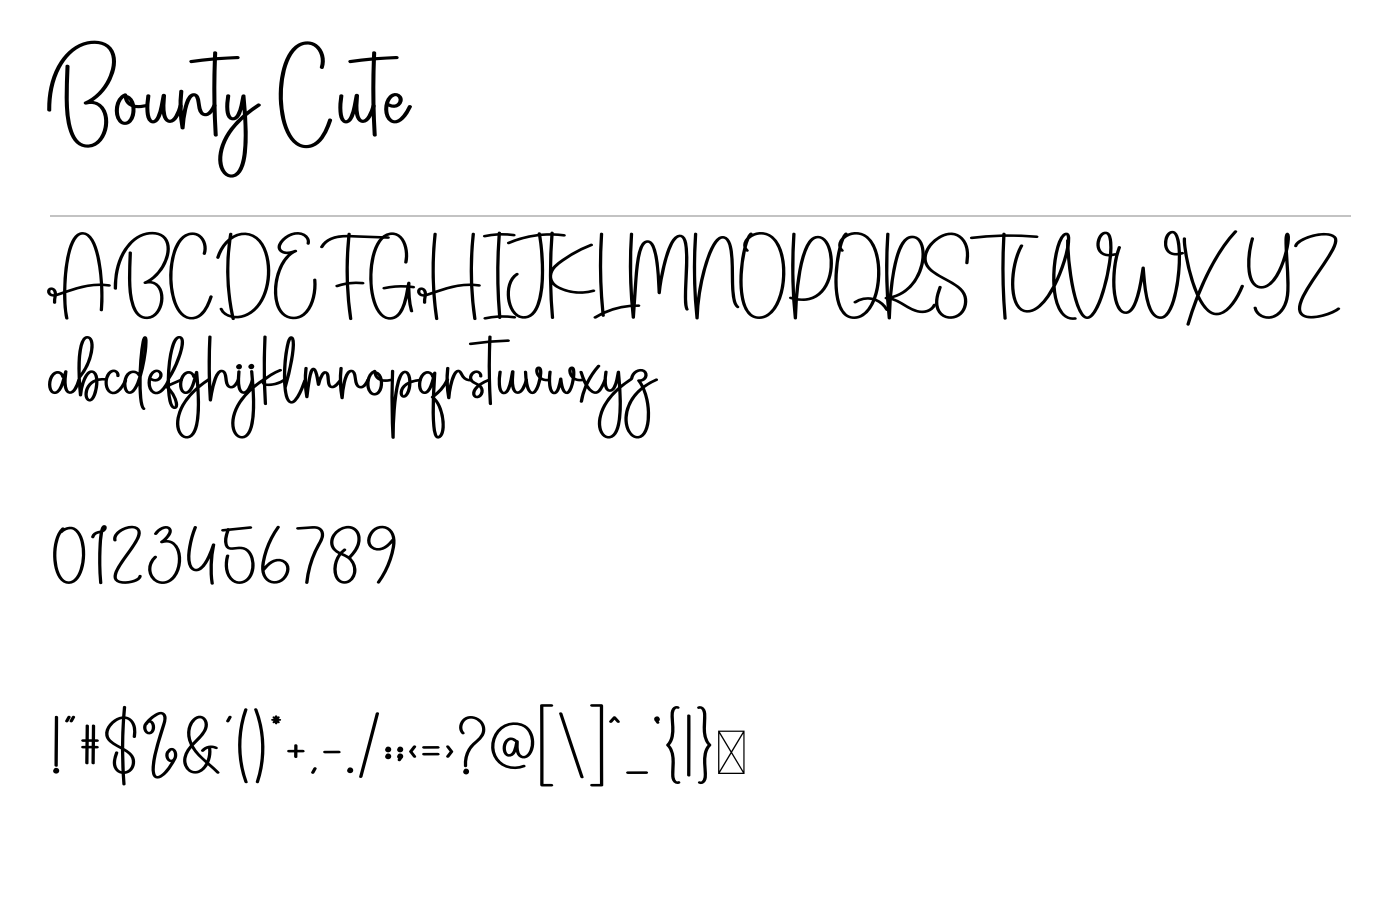 Bounty Cute
ABCDEFGHIJKLMNOPQRSTUVWXYZ
abcdefghijklmnopqrstuvwxyz
0123456789
!"#$%&'()*+,-./:;<=>?@[\]^_`{|}